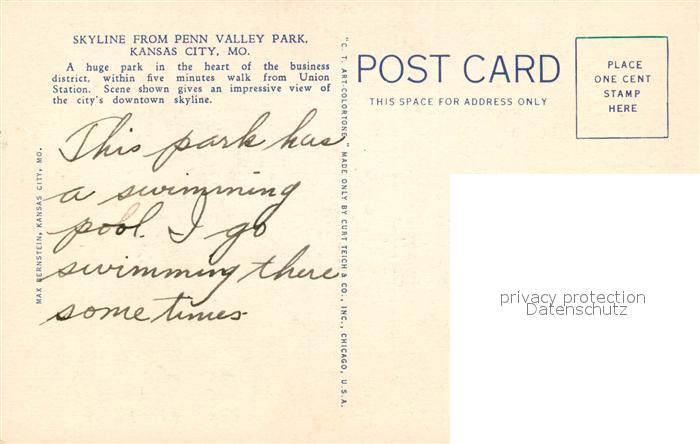 SKYLINE FROM PENN VALLEY PARK,
KANSAS CITY, MO.
A huge park in the heart of the business
district, within five minutes walk from Union
Station. Scene shown gives an impressive view of
the city's downtown skyline.
This park has
a swimming
pool. I go
swimming there
sometimes
MAX BERNSTEIN, KANSAS CITY, MO.
"C. T. ART-COLORTONE" MADE ONLY BY CURT TEICH & CO., INC., CHICAGO, U.S.A.
POST CARD
THIS SPACE FOR ADDRESS ONLY
PLACE
ONE CENT
STAMP
HERE
privacy protection
Datenschutz